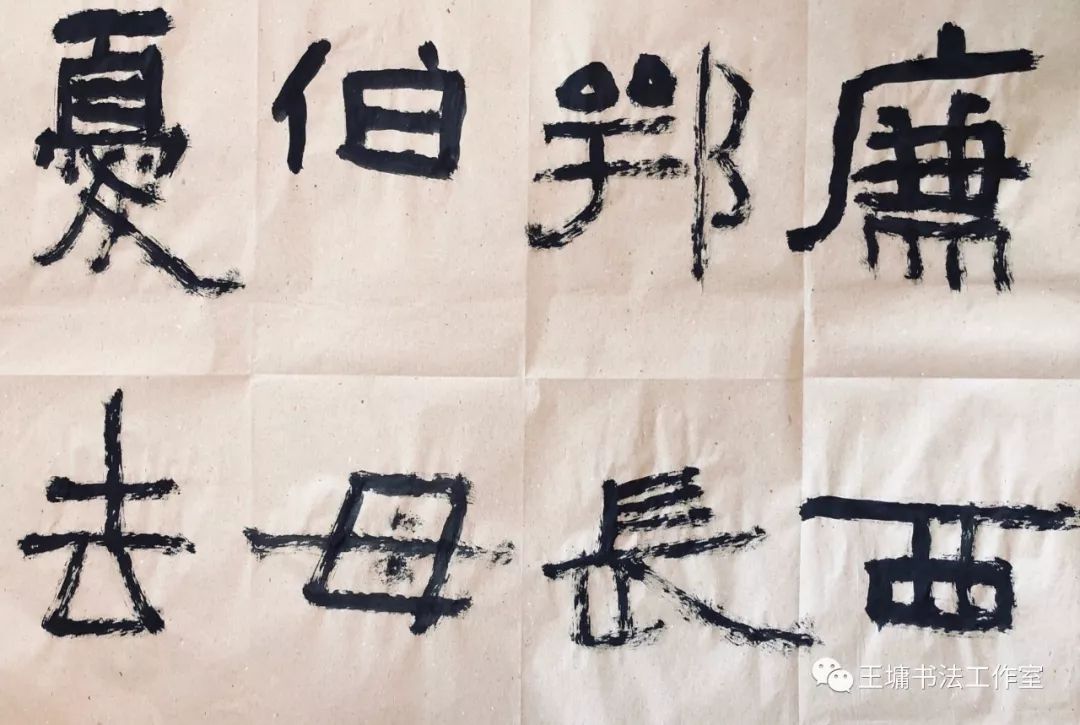 憂伯鄂廉
去母長西
王墉书法工作室